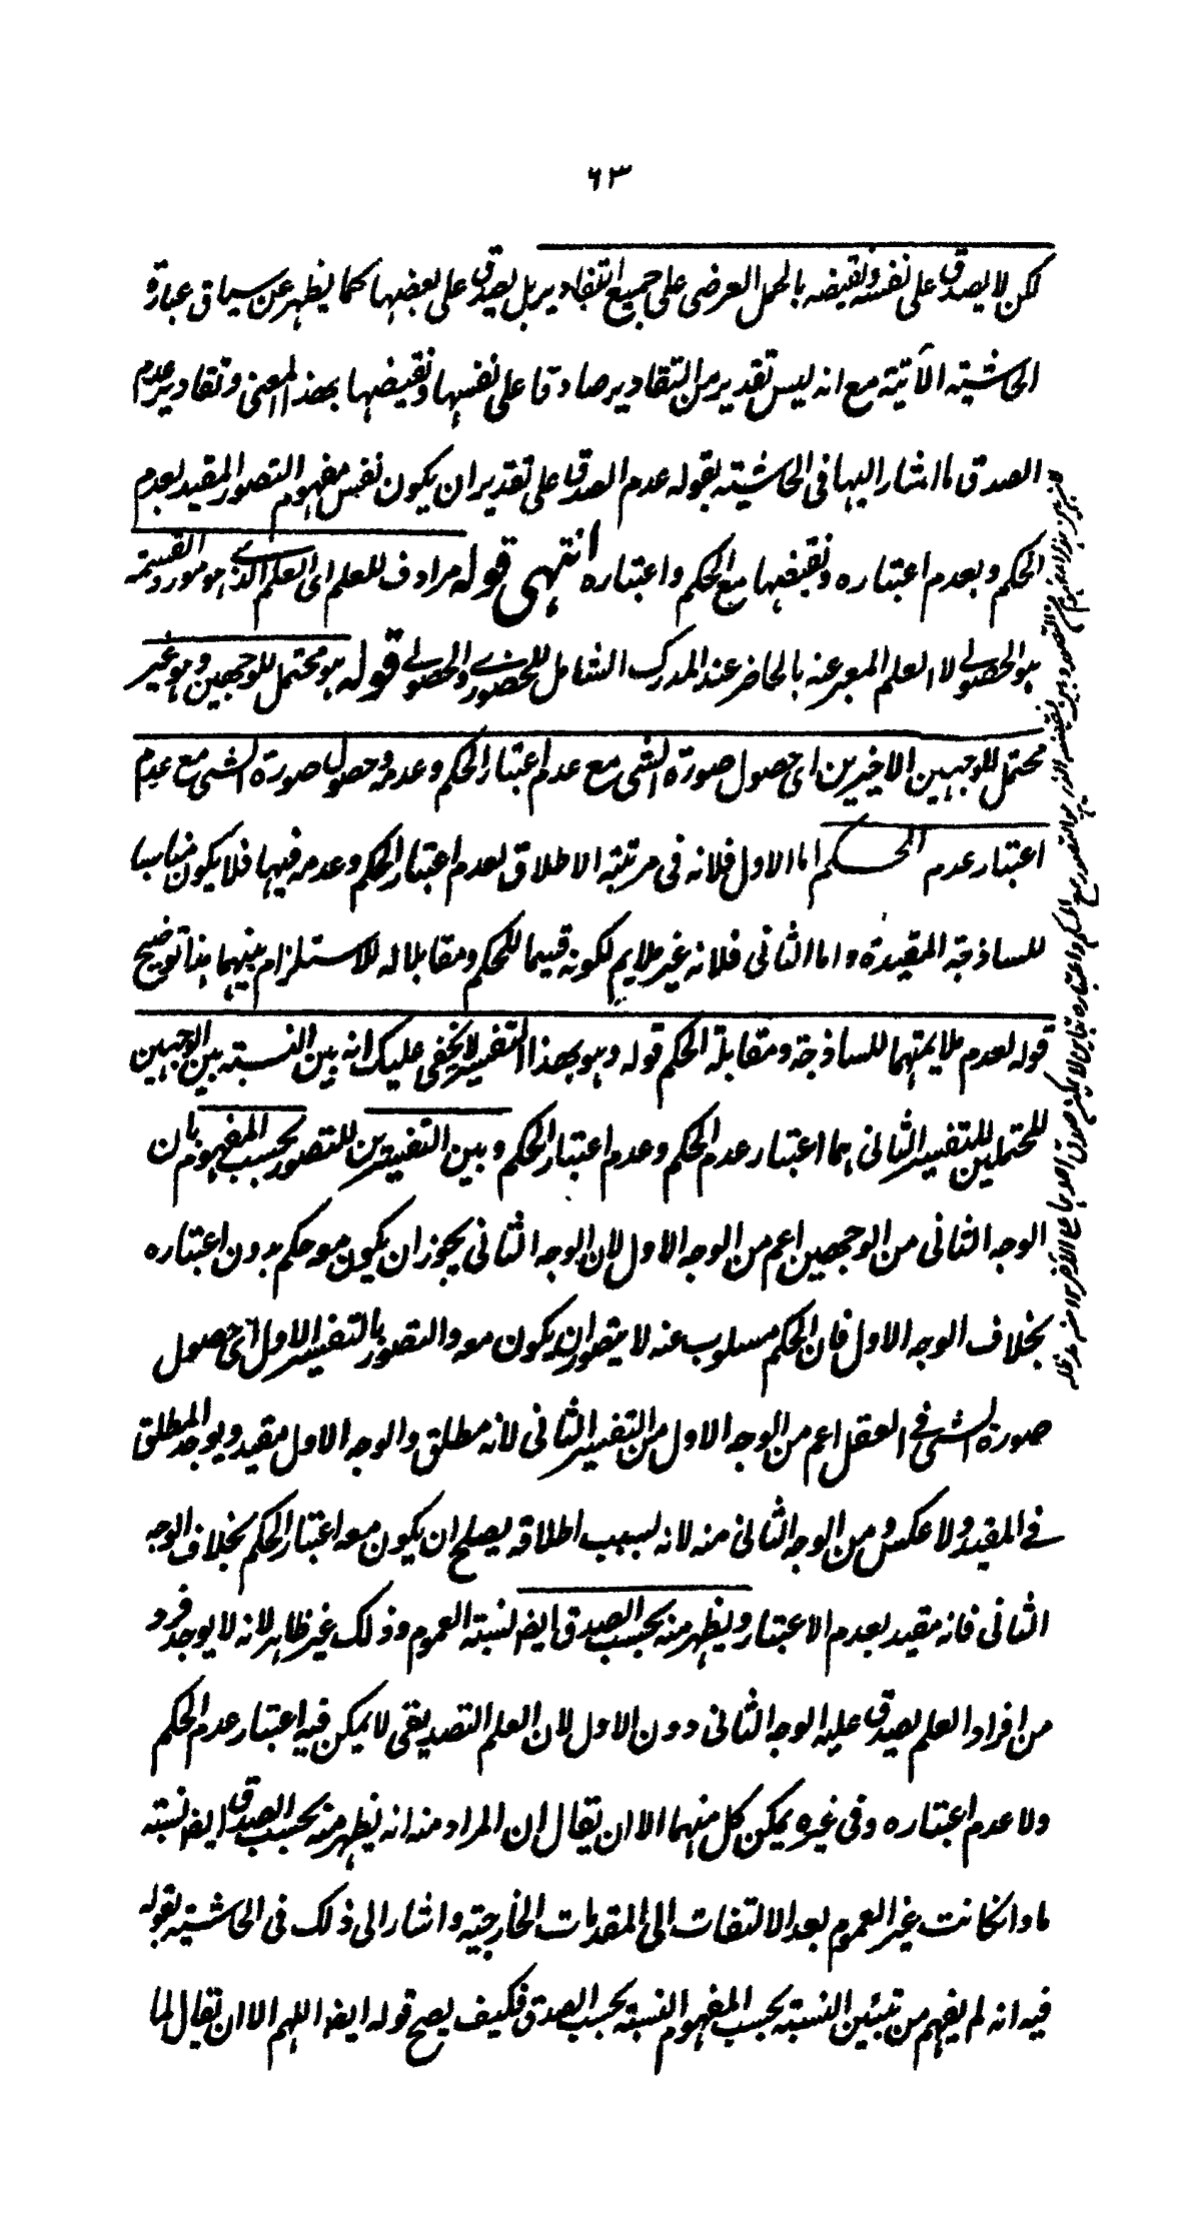 ٦٣
لكن لا يصدق على نفسه ونقيضه بالحمل العرضى على جميع التقادير بل يصدق على بعضها كما يظهر عن سياق عبارة
الحاشية الآتية مع انه ليس تقدير من التقادير صادقا على نفسها ونقيضها بهذا المعنى وتقادير عدم
الصدق ما اشار اليها فى الحاشية بقوله عدم الصدق على تقدير ان يكون نفس مفهوم التصور المقيد بعدم
الحكم وبعدم اعتباره ونقيضها مع الحكم واعتباره انتهى قوله مرادف للعلم اى العلم الذى هو مورد القسمة
هو الحصولى لا العلم المعبر عنه بالحاضر عند المدرك الشامل للحضورى والحصولى قوله هو محتمل للوجهين وهو غير
محتمل للوجهين الاخيرين اى حصول صورة الشى مع عدم اعتبار الحكم وعدمه وحصول صورة الشى مع عدم
اعتبار عدم الحكم اما الاول فلانه فى مرتبة الاطلاق لعدم اعتبار الحكم وعدمه فيها فلا يكون مناسبا
للساذجة المقيدة واما الثانى فلانه غير ملايم لكونه قسيما للحكم ومقابلا له للاستلزام بينهما هذا توضيح
قوله لعدم ملايمتهما للساذجة ومقابلة الحكم قوله وهو بهذا التفسير لا يخفى عليك انه بين النسبة بين الوجهين
المحتملين للتفسير الثانى هما اعتبار عدم الحكم وعدم اعتبار الحكم وبين التفسيرين للتصور بحسب المفهوم بان
الوجه الثانى من الوجهين اعم من الوجه الاول لان الوجه الثانى يجوز ان يكون معه حكم بدون اعتباره
بخلاف الوجه الاول فان الحكم مسلوب عنه لا يتصور ان يكون معه والتصور بالتفسير الاول اى حصول
صورة الشى فى العقل اعم من الوجه الاول من التفسير الثانى لانه مطلق والوجه الاول مقيد ويوجد المطلق
فى المقيد ولا عكس ومن الوجه الثانى منه لانه لسبب اطلاقه يصلح ان يكون معه اعتبار الحكم بخلاف الوجه
الثانى فانه مقيد بعدم الاعتبار ويظهر منه بحسب الصدق ايضا نسبة العموم وذلك غير ظاهر لانه لا يوجد فرد
من افراد العلم يصدق عليه الوجه الثانى دون الاول لان العلم التصديقى لا يمكن فيه اعتبار عدم الحكم
ولا عدم اعتباره وفى غيره يمكن كل منهما الا ان يقال ان المراد منه انه يظهر منه بحسب الصدق ايضا نسبة
ما وان كانت غير العموم بعد الالتفات الى المقدمات الخارجية واشار الى ذلك فى الحاشية بقوله
فيه انه لم يفهم من تبئين النسبة بحسب المفهوم النسبة بحسب الصدق فكيف يصح قوله ايضا اللهم الا ان يقال لما